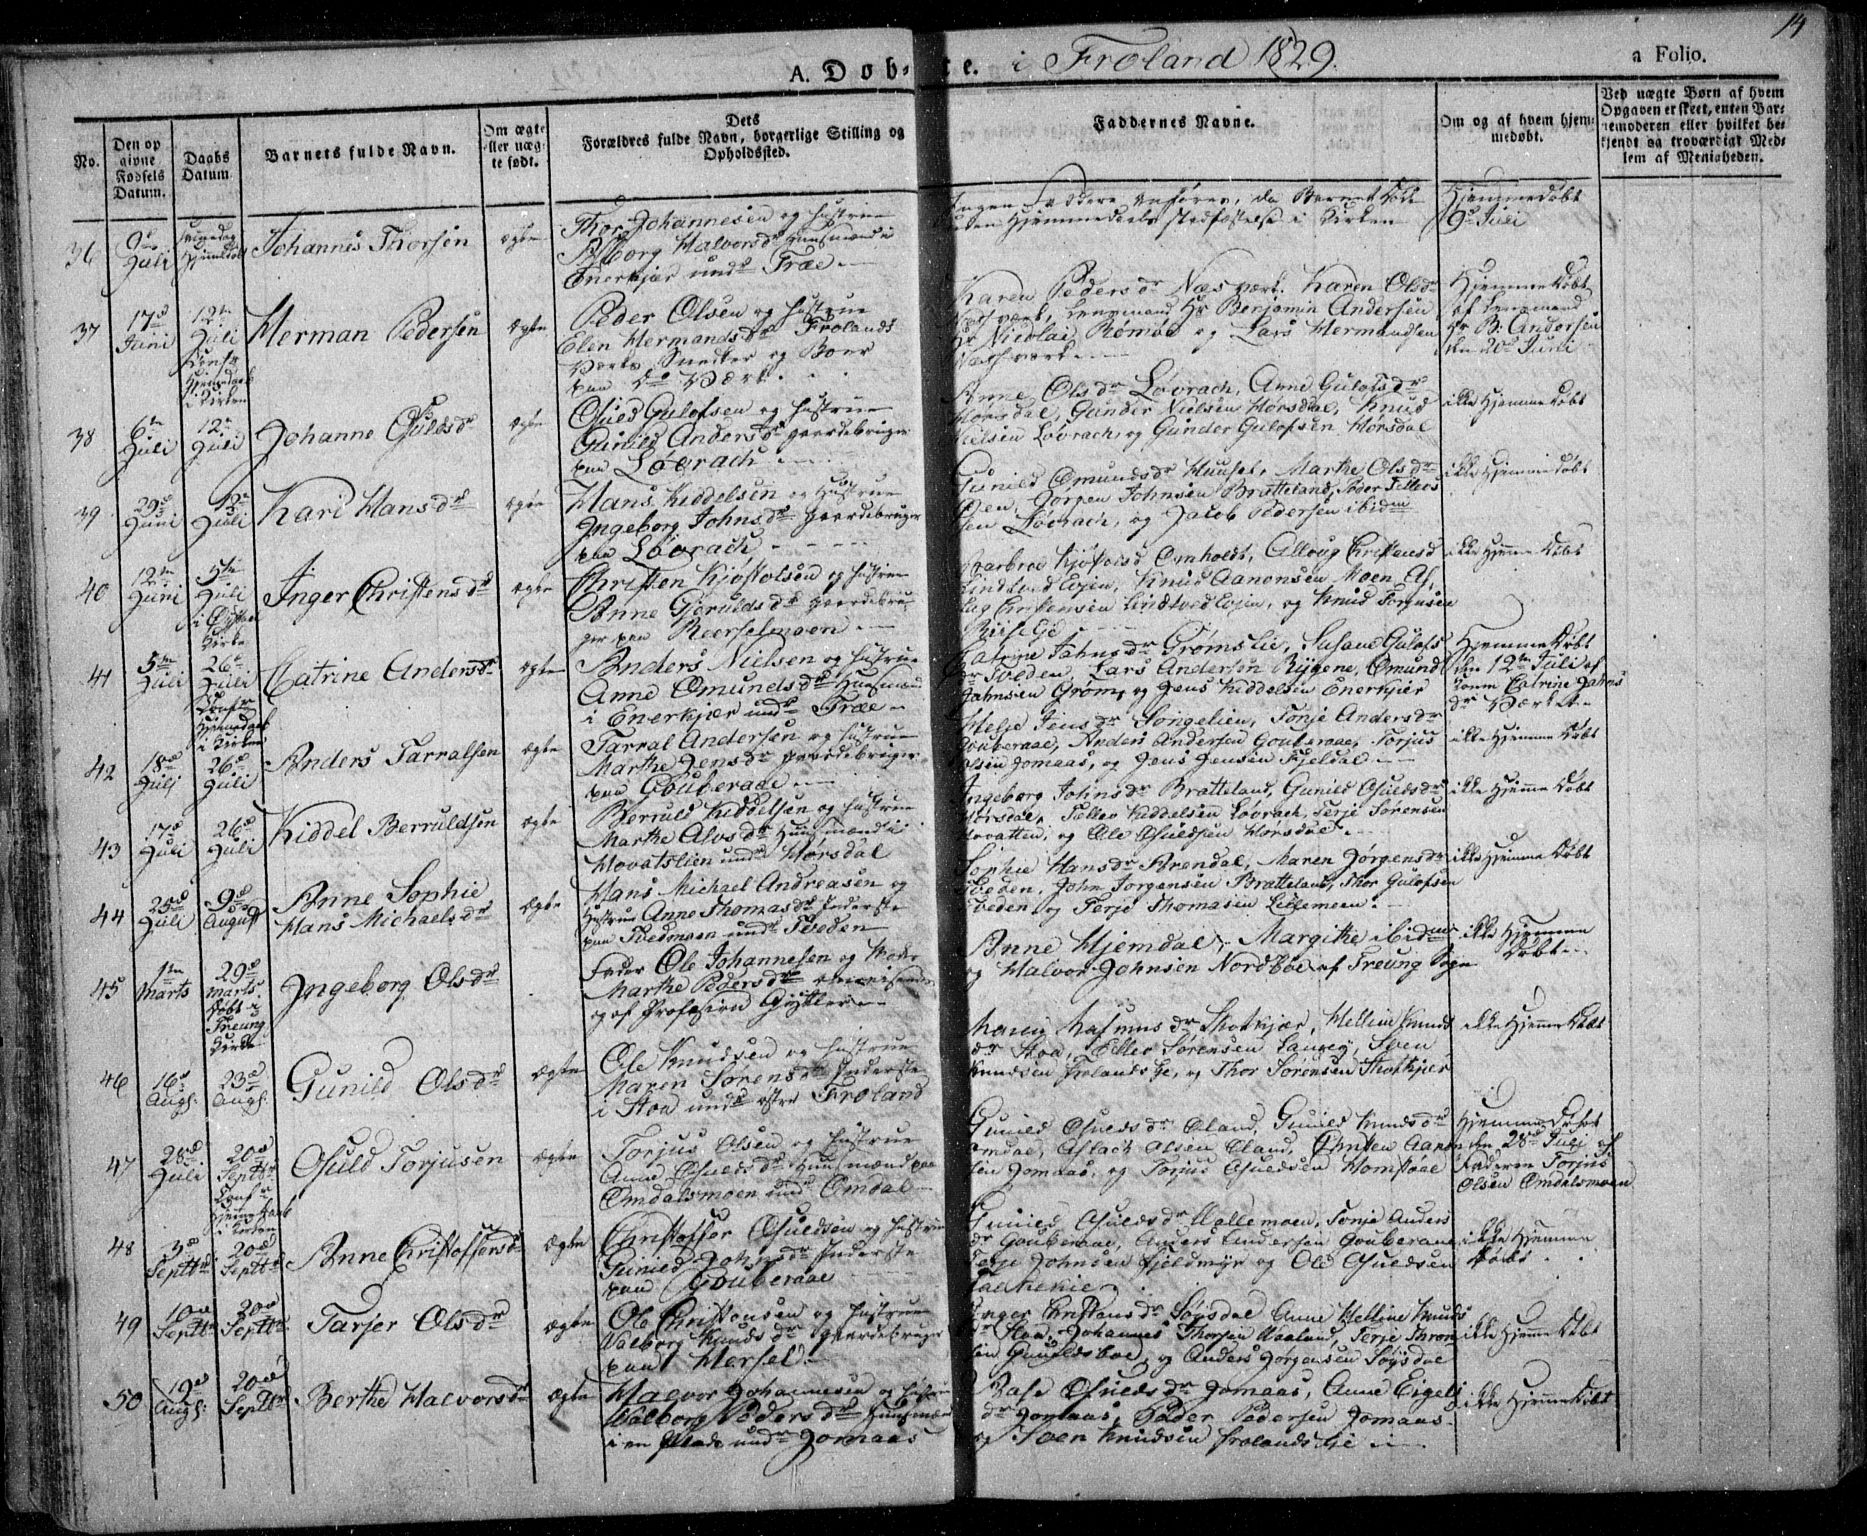 14
A. Døb-te. i Froland 1829.
a Folio.
No.
Den op
givne
Fødsels
Datum.
Daabs
Datum
Barnets fulde Navn.
Om ægte
eller uæg-
te født.
Dets
Forældres fulde Navn, borgerlige Stilling og
Opholdssted.
Faddernes Navne.
Om og af hvem hjem-
medøbt.
Ved uægte Børn af hvem
Opgaven er skeet, enten Bar-
nemoderen eller hvilket be-
kjendt og troværdigt Med-
lem af Menigheden.
36
Juli
Johannes Thorsen
ægte
Thor Johannesen og Hustrue
Halvorsdr Huusmænd i
Enerkjær undr Træe
Ingen Faddere anføres, da Barnet døde
uden Hjemmedaabs stadfæstelse i Kirken
Hjemmedøbt
9de Juli
37
17de
Juni
12te
Juli
Conf. Hjemmedaab
i Kirken
Herman Pedersen
ægte
Peder Olsen og Hustrue
Elen Hermandsdr Frolands
Værks Smelter og Boer
paa do Værk.
Karen Pedersdr Næs værk. Karen Olsdr
værk, Lensmand Hr Benjamin Andersen
Hr Nicolai Rømøe og Lars Hermandsen
værk
Hjemmedøbt
af Lensmand
Hr B. Andersen
den 20de Juni
38
6te
Juli
12te
Juli
Johanne Osuldsdr
ægte
Osuld Gulofsen og Hustrue
Gunild Andersdr gaardebruger
paa Løvrach
Anne Olsdr Løvrach, Anne Gulofsdr
Horsdal, Gunder Nielsen Hørsdal, Knud
Nielsen Løvrach, og Gunder Gulofsen Hørsdal
ikke Hjemme døbt
39
29de
Juni
12te
Juli
Kari Hansdr
ægte
Hans Kiddelsen og Hustrue
Ingeborg Johnsdr gaardebruger
paa Løvrach
Gunild Omundsdr Huuset, Marthe Olsdr
Øen, Jørgen Johnsen Bratteland, Peder Tellefs
sen Løvrach, og Jacob Pedersen ibidem
ikke Hjemme døbt
40
12te
Juni
5te
Juli
i Øyestad
Kirke
Inger Christensdr
ægte
Christen Kjøstolsen og Hustrue
Anne Gjeruldsdr gaardebru
ger paa Reerselmoen
Barbroe Kjøstolsd Omholdt, Alloug Christensd
Lindtved Evjen, Knud Aanonsen Moen, As,
lag Christensen Lindtved Evjen, og Knud Torjusen
ikke Hjemme døbt
41
5te
Juli
26de
Juli
Conf. Hjemmedaab
i Kirken
Catrine Andersdr
ægte
Anders Nielsen og Hustrue
Anne Omundsdr Huusmænd
i Enerkjær undr Træe
Catrine Jahnsdr Grømslie, Susane Gulofs
dr Tveden, Lars Andersen Rygene, Omund
Jahnsen Grøm, og Jens Kiddelsen Enerkjær
Hjemmedøbt
den 12te Juli af
Konen Catrine Jahns
dr Værket
42
18de
Juli
26de
Juli
Anders Tarralsen
ægte
Tarral Andersen og Hustrue
Marthe Jensdr gaardebruger
paa Gouberaae
Helje Jensdr Songelien, Tonje Andersdr
Gouberaae, Anders Andersen Gouberaae, Torjus
Olsen Jomaas, og Jens Jensen Fjeldal
ikke Hjemme døbt
43
17de
Juli
26de
Juli
Kiddel Berruldsen
ægte
Berruld Kiddelsen og Hustrue
Marthe Alvsdr Huusmænd i
Hovatslien undr Hørsdal
Ingeborg Johnsdr Bratteland, Gunild Osuldsdr
Hørsdal, Tellev Kiddelsen Løvrach, Terje Sørensen
Hovatten, og Ole Osuldsen Hørsdal
ikke Hjemme døbt
44
25de
Juli
9de
August
Anne Sophie
Hans Michaelsdr
ægte
Hans Michael Andreasen og
Hustrue Anne Thomasdr Inderste
paa Tvedmoen undr Tveden
Sophie Hansdr Arendal, Maren Jørgensdr
Tveden, John Jørgensen Bratteland, Thor Gulofsen
Tveden og Terje Thomasen Lillemoen
ikke Hjemme døbt
45
1te
Marts
29de
Marts
døbt i
Treung
Kirke
Ingeborg Olsdr
Fader Ole Johannesen og Moder
Marthe Pedersdr omreisende
og af Profesion Gøytler
Anne Hjemdal, Margithe ibidem
og Halvor Johnsen Nordbøe af Treung Sogn
ikke Hjemme
døbt
46
16de
Augs.
23de
Augs.
Gunild Olsdr
ægte
Ole Knudsen og Hustrue
Maren Sørensdr Inderste
i Stoa undr østre Froland
Maren Rasmusdr Stotkjær, Helline Knuds
dr Stoa, Ellev Sørensen Lauvey, Sven
Knudsen Frolandslie, og Thor Sørensen Stotkjær
ikke Hjemme døbt
47
28de
Juli
20de
Septbr
Conf. Hjemmedaab
i Kirken
Osuld Torjusen
ægte
Torjus Olsen og Hustrue
Anne Osuldsdr Huusmænd paa
Omdalsmoen undr Omdal
Gunild Osuldsdr Øland, Gunild Knudsdr
Omdal, Aslach Olsen Øland, Christen Aanon
sen Jomaas, og Torjus Osuldsen Homstøal
Hjemme døbt
den 28de Juli af
Faderen Torjus
Olsen Omdalsmoen
48
3de
Septbr
20de
Septbr
Anne Christoffersdr
ægte
Christoffer Osuldsen og Hustrue
Gunild Johnsdr Inderste
paa Gouberaae
Gunild Osuldsdr Vallemoen, Tonje Anders
dr Gouberaae, Anders Andersen Gouberaae,
Terje Johnsen Fjeldmyr og Ole Osuldsen
ikke Hjemme
døbt
49
10de
Septbr
20de
Septbr
Tarjer Olsdr
ægte
Ole Christensen og Hustrue
Valborg Knudsdr gaardebruger
paa Hersel
Inger Christensdr Søysdal Anne Helline Knuds
dr Stoa, Johannes Thorsen Haaland, Terje Thron
sen Gunildsboe, og Anders Jørgensen Søysdal
ikke Hjemme døbt
50
19de
Augs.
20de
Septbr
Berthe Halvorsdr
ægte
Halvor Johannesen og Hustrue
Valborg Pedersdr Huusmænd
i en Plads undr Jomaas
Aase Osuldsdr Jomaas, Anne Eigels
dr Jomaas, Peder Pedersen Jomaas
og Sven Knudsen Frolandslie
ikke Hjemme døbt